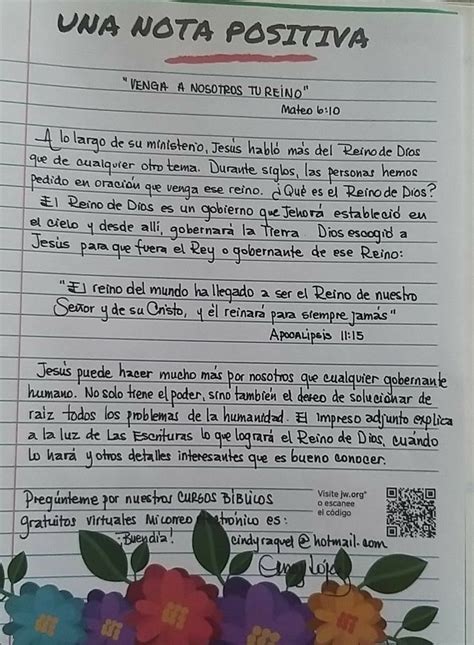 UNA NOTA POSITIVA
"VENGA A NOSOTROS TU REINO"
Mateo 6:10
A lo largo de su ministerio, Jesús habló más del Reino de Dios
que de cualquier otro tema. Durante siglos, las personas hemos
pedido en oración que venga ese reino. ¿Qué es el Reino de Dios?
El Reino de Dios es un gobierno que Jehová estableció en
el cielo y desde allí, gobernará la Tierra. Dios escogió a
Jesús para que fuera el Rey o gobernante de ese Reino:
"El reino del mundo ha llegado a ser el Reino de nuestro
Señor y de su Cristo, y él reinará para siempre jamás"
Apocalipsis 11:15
Jesús puede hacer mucho más por nosotros que cualquier gobernante
humano. No solo tiene el poder, sino también el deseo de solucionar de
raiz todos los problemas de la humanidad. El impreso adjunto explica
a la luz de Las Escrituras lo que logrará el Reino de Dios, cuándo
lo hará y otros detalles interesantes que es bueno conocer.
Pregúnteme por nuestros CURSOS BÍBLICOS
gratuitos virtuales Mi correo es:
¡Buen día! cindyraquel@hotmail.com
Visite jw.org®
o escanee
el código